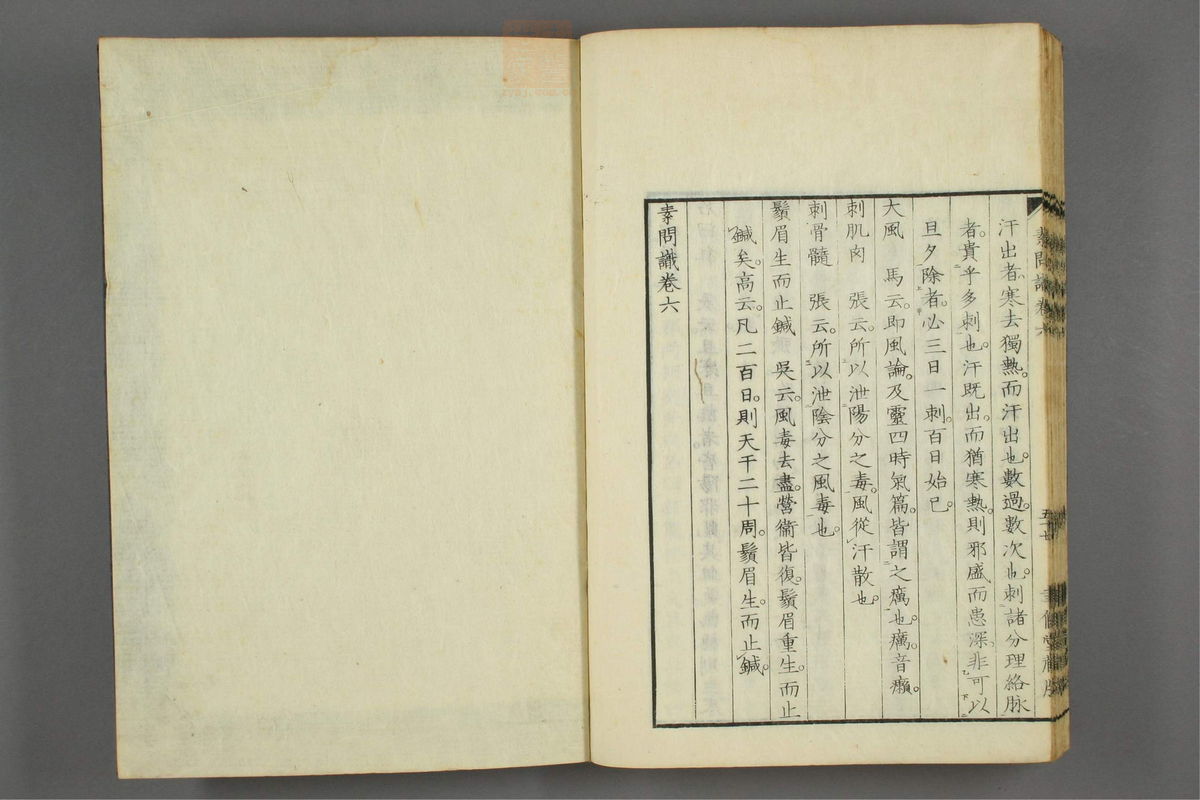 汗出者寒去獨熱而汗出也數過數次也刺諸分理絡脉
者貴乎多刺也汗既出而猶寒熱則邪盛而患深非可以
旦夕除者必三日一刺百日始已
大風 馬云即風論及靈四時氣篇皆謂之癘也癘音癩
刺肌肉 張云所以泄陽分之毒風從汗散也
刺骨髓 張云所以泄陰分之風毒也
鬚眉生而止鍼 吳云風毒去盡營衞皆復鬚眉重生而止
鍼矣高云凡二百日則天干二十周鬚眉生而止鍼
素問識卷六